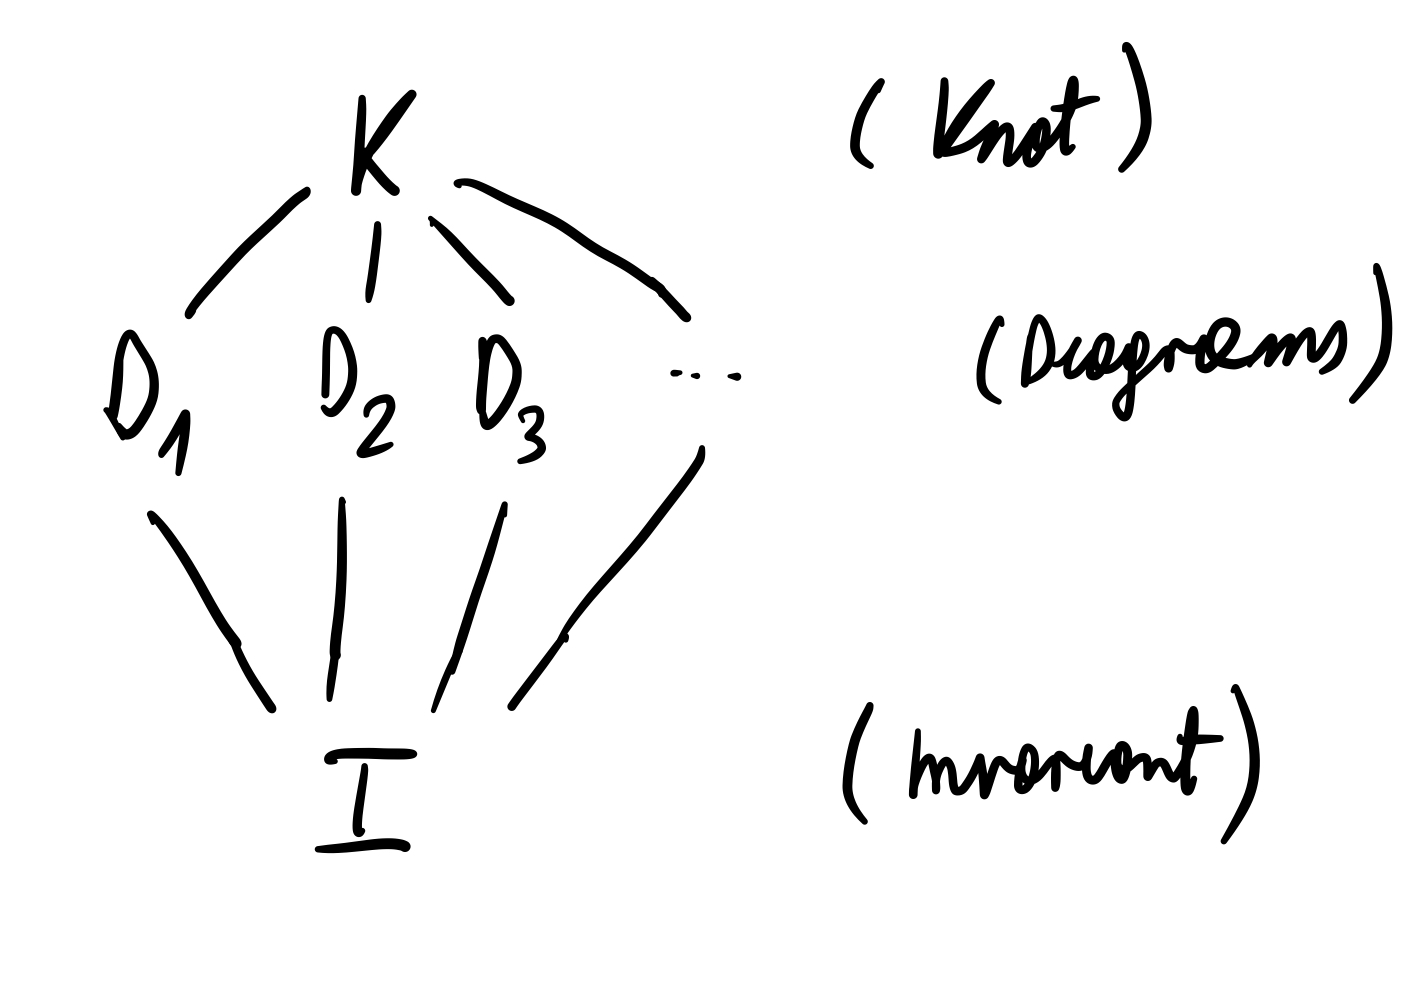 K (Knot)
D1 D2 D3 ... (Diagrams)
I (Invariant)